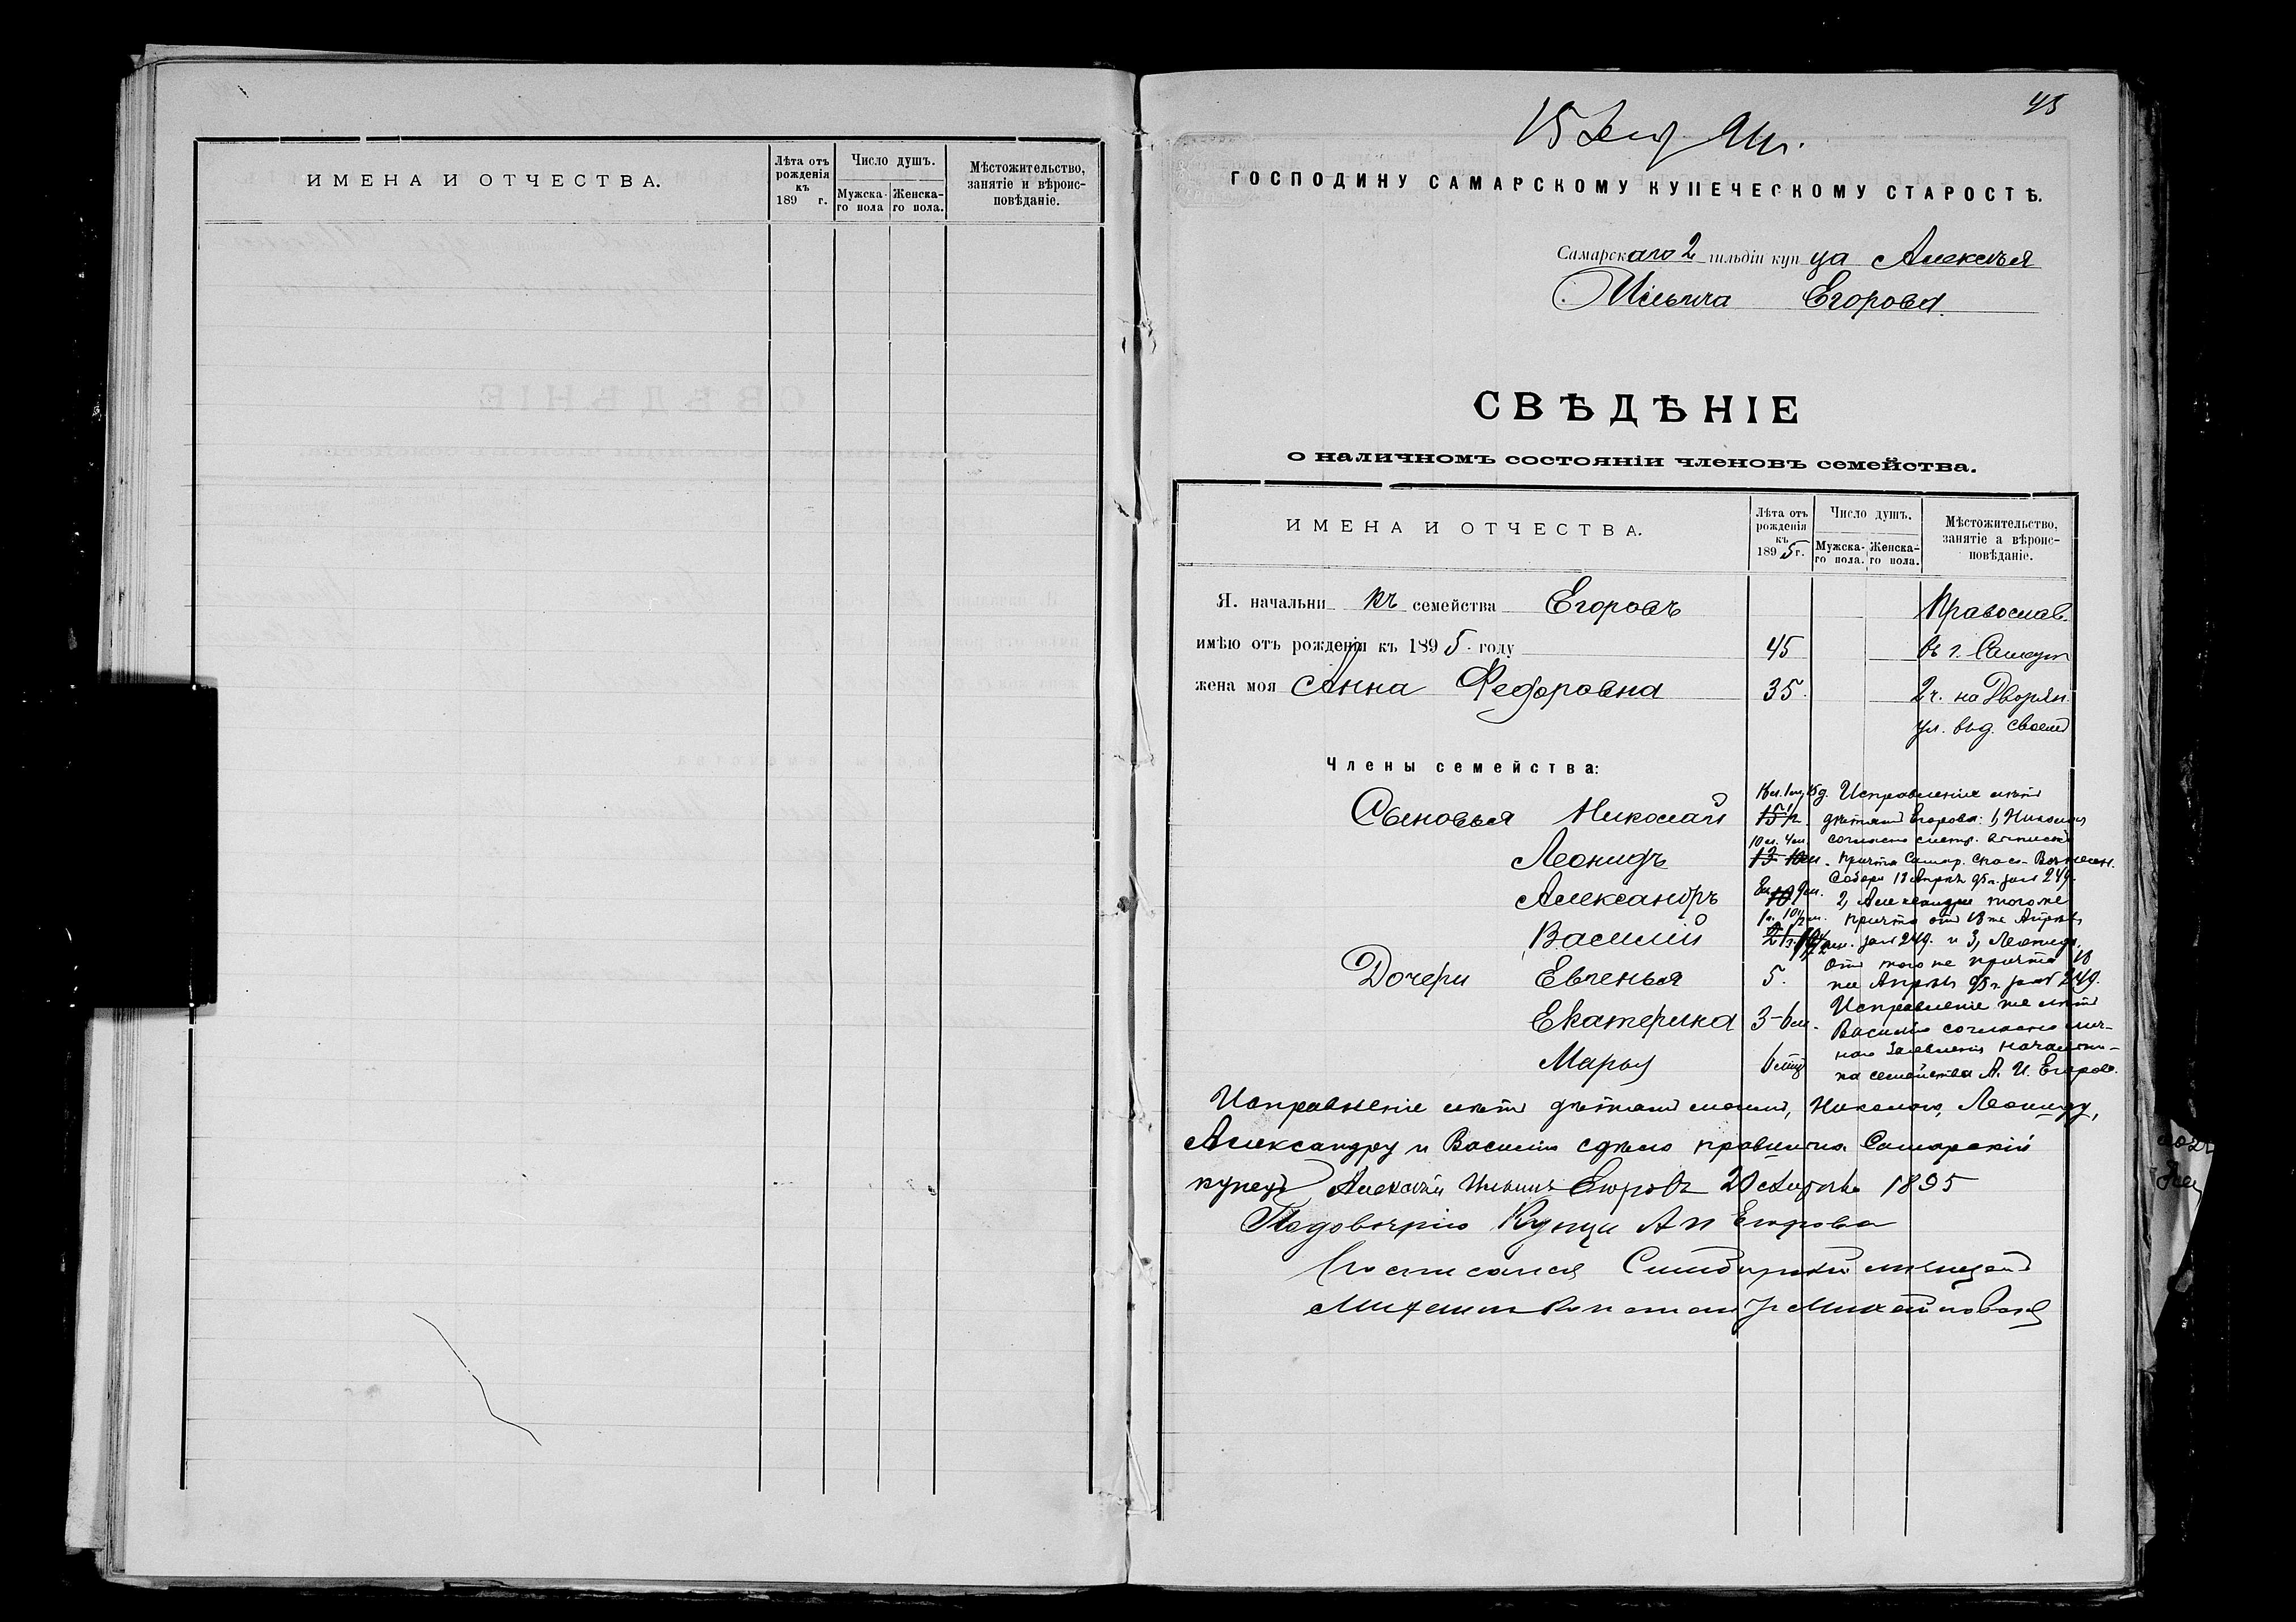 ИМЕНА И ОТЧЕСТВА.
Лѣта отъ рожденія къ 189 г.
Число душъ.
Мужска-го пола
Женска-го пола.
Мѣстожительство, занятіе и вѣроис-повѣданіе.
45
15 94 г.
ГОСПОДИНУ САМАРСКОМУ КУПЕЧЕСКОМУ СТАРОСТѢ.
Самарскаго 2 гильдіи купца Алексѣя
Ильича Егорова.
СВѢДѢНІЕ
о наличномъ состояніи членовъ семейства.
ИМЕНА И ОТЧЕСТВА.
Лѣта отъ рожденія къ 1895 г.
Число душъ.
Мужска-го пола.
Женска-го пола.
Мѣстожительство, занятіе а вѣроис-повѣданіе.
Я. начальникъ семейства Егоровъ Православ.
имѣю отъ рожденія къ 1895. году 45 въ г.
жена моя Анна Федоровна 35. 2 ч. на Дворян.
ул. в. д. своемъ
Члены семейства:
Исправленіе лѣтъ
Сыновья Николай 15 1/2 дѣтямъ Егорова: 1, Николаю
10 л. 4 м. согласно метр. выписки
Леонидъ 13 10 м. причта Самар. Спасо-Вознесен.
Собора 18 Апрѣля 95 г. за № 249.
Александръ 10 2, Александру того же
причта отъ 18 же Апрѣля
Василій за № 249. и 3, Леониду,
отъ того же причта 18
Дочери Евгенья 5. же Апрѣля 95 г. за № 249.
Исправленіе же лѣтъ
Екатерина 3-6 м. Василію согласно лич-
наго заявленія начальни-
Марья 6 мѣс ка семейства А. И. Егорова.
Исправленіе лѣтъ дѣтямъ моимъ, Николаю, Леониду,
Александру и Василію сдѣлано правильно. Самарскій
купецъ Алексѣй Ильичъ Егоровъ 20 октября 1895
По довѣрію Купца А И Егорова
Росписался Симбирскій мещанинъ